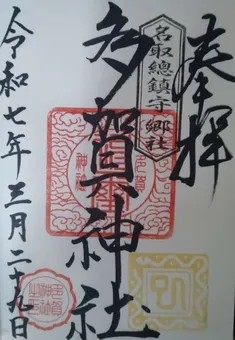 奉拝
名取總鎮守郷社
多賀神社
令和七年三月二十九日